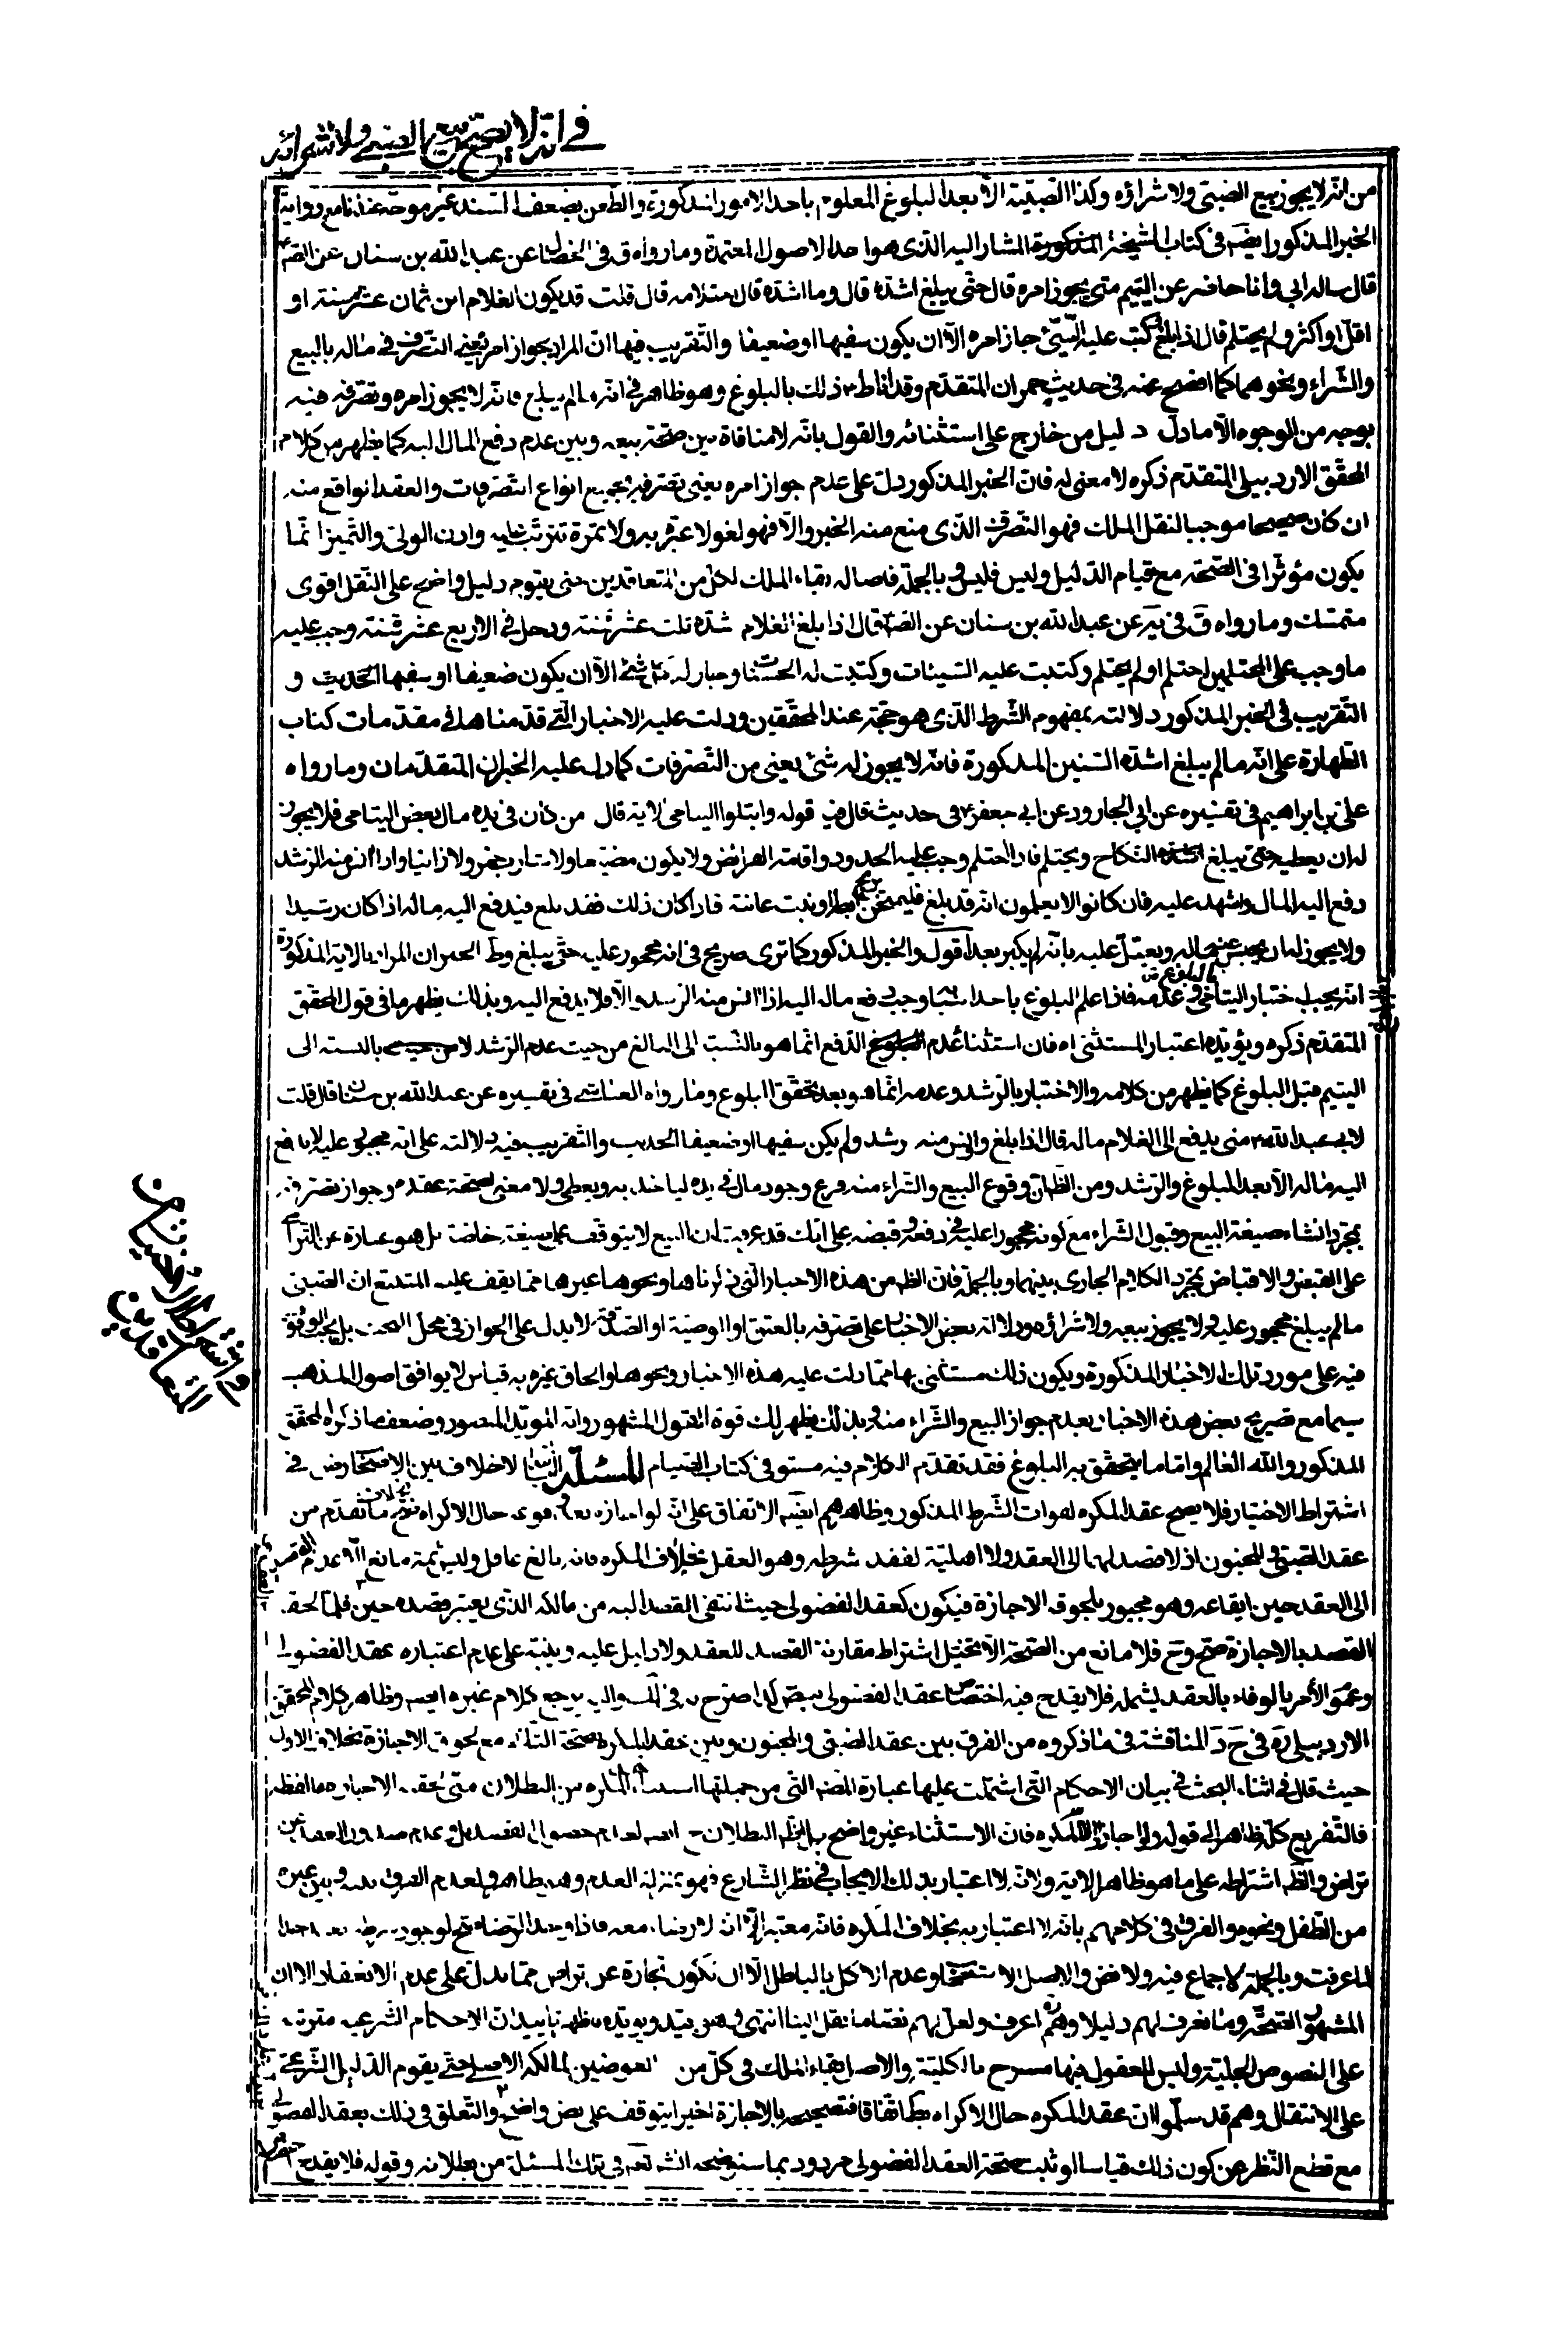 في انه لا يصح بيع الصبي ولا شرائه
من انه لا يجوز بيع الصبى ولا شراؤه وكذا الصبيّة الا بعد البلوغ المعلوم باحد الامور المذكورة والطعن بضعف السند غير موجّه عندنا مع رواية
الخبر المذكور ايضَه فى كتاب المشيخة المشار اليه الذى هو احد الاصول المعتمدة وما رواه ق فى الخصال عن عبد الله بن سنان عن الصّم
قال ساله ابى وانا حاضر عن اليتيم متى يجوز امره قال حتّى يبلغ اشده قال وما اشده قال احتلامه قال قلت قد يكون الغلام ابن ثمان عشر سنة او
اقل او اكثر ولم يحتلم قال اذا بلغ وكتب عليه الشّئ جاز امره الّا ان يكون سفيها او ضعيفا والتّقريب فيها انّ المراد بجواز امره يعنى التصرف فى ماله بالبيع
والشّراء ونحوهما كما افصح عنه فى حديث حمران المتقدّم وقد اناط ذلك بالبلوغ وهو ظاهر فى انّه ما لم يبلغ فانّه لا يجوز امره وتصرّفه فيه
بوجه من الوجوه الّا ما دل دليل من خارج على استثنائه والقول بانّه لا منافاة بين صحّة بيعه وبين عدم دفع المال اليه كما يظهر من كلام
المحقّق الاردبيلى المتقدّم ذكره لا معنى له فانّ الخبر المذكور دلّ على عدم جواز امره يعنى تصرّفه بجميع انواع التصرّفات والعقد الواقع منه
ان كان صحيحا موجبا لنقل الملك فهو التصرف الذى منع منه الخبر والّا فهو لغو لا عبرة به ولا ثمرة تترتب عليه واذن الولىّ والتّميز انّما
يكون مؤثرا فى الصّحّة مع قيام الدّليل وليس فليس وبالجملة فاصالة بقاء الملك لكل من المتعاقدين حتى يقوم دليل واضح على النّقل اقوى
متمسّك وما رواه ق فى يه عن عبد الله بن سنان عن الصّم قال اذا بلغ الغلام اشدّه ثلث عشر سنة ودخل فى الاربع عشر سنة وجب عليه
ما وجب على المحتلمين احتلم او لم يحتلم وكتبت عليه السّيئات وكتبت له الحسنات وجاز له كل شئ الّا ان يكون ضعيفا او سفيها الحديث و
التّقريب فى الخبر المذكور دلالته بمفهوم الشّرط الذى هو حجّة عند المحقّقين ودلت عليه الاخبار الّتى قدمناها فى مقدّمات كتاب
الطّهارة على انّه ما لم يبلغ اشدّه السّنين المذكورة فانّه لا يجوز له شئ يعنى من التّصرفات كما دل عليه الخبران المتقدّمان وما رواه
على بن ابراهيم فى تفسيره عن ابى الجارود عن ابى جعفر فى حديث قال فيه قوله وابتلوا اليتامى الاية قال من كان فى يده مال بعض اليتامى فلا يجوز
له ان يعطيه حتى يبلغ النّكاح ويحتلم فاذا احتلم وجب عليه الحدود واقامة الفرائض ولا يكون مضيعا ولا شارب خمر ولا زانيا واذا انس منه الرّشد
دفع اليه المال واشهد عليه فان كانوا لا يعلمون انّه قد بلغ فليمتحن بريح ابطه او نبت عانته فاذا كان ذلك فقد بلغ فيدفع اليه ماله اذا كان رشيدا
ولا يجوز له ان يحبس عنه ماله ويعتل عليه بانّه لم يكبر بعد اقول والخبر المذكور كما ترى صريح فى انه محجور عليه حتّى يبلغ
انّه يجب اختبار اليتامى بالبلوغ وعدمه فاذا علم البلوغ باحد اسبابه وجب دفع ماله اليه اذا انس منه الرّشد والّا فلا يدفع اليه وبذلك يظهر ما فى قول المحقّق
المتقدّم ذكره ويؤيّده اعتبار المستثنى اه فان استثناء عدم الدّفع انّما هو بالنّسبة الى البالغ من حيث عدم الرّشد لا بالنسبة الى
اليتيم قبل البلوغ كما يظهر من كلامه والاختبار بالرّشد وعدمه انّما هو بعد تحقّق البلوغ وما رواه العيّاشى فى تفسيره عن عبد الله بن سنان قال قلت
لابى عبد الله متى يدفع الى الغلام ماله قال اذا بلغ وانس منه رشد ولم يكن سفيها او ضعيفا الحديث والتّقريب فيه دلالته على انّه محجور عليه لا يدفع
اليه ماله الّا بعد البلوغ والرّشد ومن الظّاهر انّ وقوع البيع والشّراء منه فرع وجود مال فى يده لياخذ به ويعطى ولا معنى لصحّة عقده وجواز تصرفه
بمجرّد انشاء صيغة البيع وقبول الشراء مع كونه محجورا عليه فى دفعه وقبضه على انّك قد عرفت ان البيع لا يتوقف على صيغة خاصّة بل هو عبارة عن التّراضى
على القبض والاقباض بمجرّد الكلام الجارى بينهما وبالجملة فانّ الظّم من هذه الاخبار التى ذكرناها ونحوها غيرها ممّا يقف عليه المتتبّع ان الصّبىّ
ما لم يبلغ محجور عليه ولا يجوز بيعه ولا شراؤه ودلالة بعض الاخبار على تصرفه بالعتق او الوصيّة او الصّدقة لا يدل على الجواز فى محلّ البحث بل يجب الوقوف
فيه على مورد تلك الاخبار المذكورة ويكون ذلك مستثنى بها ممّا دلت عليه هذه الاخبار ونحوها والحاق غيره به قياس لا يوافق اصول المذهب
سيما مع تصريح بعض هذه الاخبار بعدم جواز البيع والشّراء منه وبذلك يظهر لك قوة القول المشهور وانّه المؤيّد المنصور وضعف ما ذكره المحقّق
المذكور والله العالم وامّا ما يتحقّق به البلوغ فقد تقدّم الكلام فيه مستوفى فى كتاب الصّيام المسئلة الثانية لا خلاف بين الاصحاب رض فى
اشتراط الاختيار فلا يصح عقد المكره لفوات الشّرط المذكور وظاهرهم ايضَه الاتفاق على انّه لو اجازه بعد زوال الاكراه صحّ بخلاف ما تقدّم من
عقد الصّبىّ والمجنون اذ لا قصد لهما الى العقد ولا اهليّة لفقد شرطه وهو العقل بخلاف المكره فانّه بالغ عاقل وليس ثمّة مانع الّا عدم القصد
الى العقد حين ايقاعه وهو مجبور بلحوق الاجازة فيكون كعقد الفضولى حيث انتفى القصد اليه من مالكه الذى يعتبر قصده حين العقد فلمّا لحقه
القصد بالاجازة صحّ وح فلا مانع من الصّحّة الّا تخيّل اشتراط مقارنة القصد للعقد ولا دليل عليه وينبّه على عدم اعتباره عقد الفضولى
وعموم الأمر بالوفاء بالعقد يشمله فلا يقدح فيه اختصاص عقد الفضولى بنص كذا صرّح به فى لك واليه يرجع كلام غيره ايضه وظاهر كلام المحقّق
الاردبيلى ره فى ح د المناقشة فى ما ذكروه من الفرق بين عقد الصّبىّ والمجنون وبين عقد المكره بصحّة الثّانى مع لحوق الاجازة بخلاف الاول
حيث قال فى اثناء البحث فى بيان الاحكام التّى اشتملت عليها عبارة المصَه التّى من جملتها استثناء المكره من البطلان متى لحقته الاجازة ما لفظه
فالتّفريع كلّه ظاهر الى قوله ولو اجاز الّا المكره فان الاستثناء غير واضح بل الظّم البطلان ح ايضه لعدم حصول القصد بل وعدم صدور العقد عن
تراض والظّم اشتراطه على ما هو ظاهر الاية ولانّه لا اعتبار بذلك الايجاب فى نظر الشّارع فهو بمنزلة العدم وهو ظاهر ولعدم الفرق بينه وبين غيره
من الطّفل ونحوه والفرق فى كلامهم بانّه لا اعتبار به بخلاف المكره فانّه معتبر الّا انّه لا رضاء معه فاذا وجد الرّضاء صحّ لوجود شرطه
لما عرفت وبالجملة لا اجماع فيه ولا نص والاصل الاستصحاب وعدم الاكل بالباطل الّا ان تكون تجارة عن تراض ممّا يدلّ على عدم الانعقاد الا ان
المشهور الصّحّة وما نعرف لهم دليلا وهم اعرف ولعلّ لهم نصّا ما نقل الينا انتهى وهو جيّد ويؤيّده ما ظهر انّ الاحكام الشّرعيه مترتبه
على النصوص الجليّة وليس للعقول فيها مسرح بالكليّة والاصل بقاء الملك فى كلّ من العوضين لمالكه الاصلى حتّى يقوم الدّليل الشّرعىّ
على الانتقال وهم قد سلّموا انّ عقد المكره حال الاكراه بط اتّفاقا فتصحيحه بالاجازة اخيرا يتوقف على نص واضح والتّعلق فى ذلك بعقد الفضولى
مع قطع النّظر عن كون ذلك قياسا لو ثبت صحّة العقد الفضولى مردود بما سنوضحه انشَه تعَه فى تلك المسئلة من بطلانه وقوله فلا يقدح
في اشتراط الاختيار من
المتعاقدين